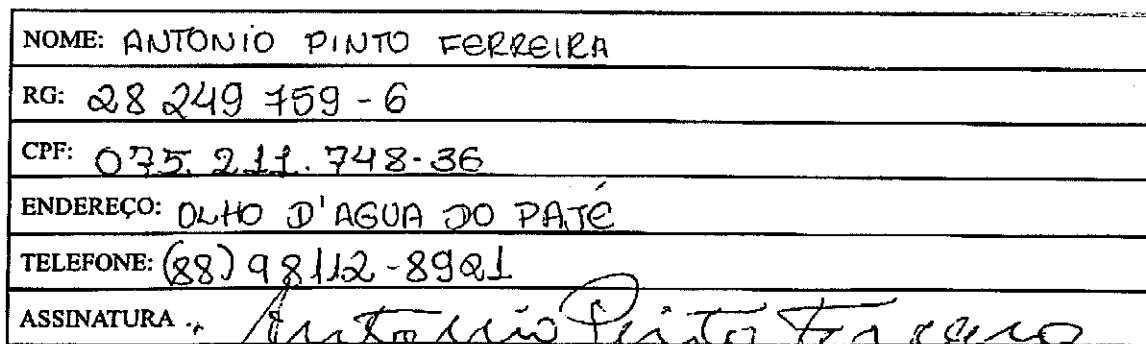 NOME: ANTONIO PINTO FERREIRA
RG: 28 249 759-6
CPF: 075.211.748-36
ENDEREÇO: OLHO D'AGUA DO PATÉ
TELEFONE: (88) 98112-8921
ASSINATURA: Antonio Pinto